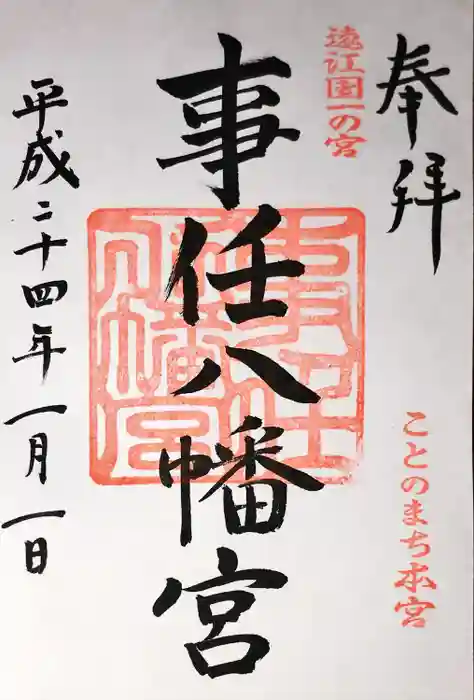 奉拝
遠江国一の宮
ことのまち本宮
事任八幡宮
事任八幡宮
平成二十四年一月一日